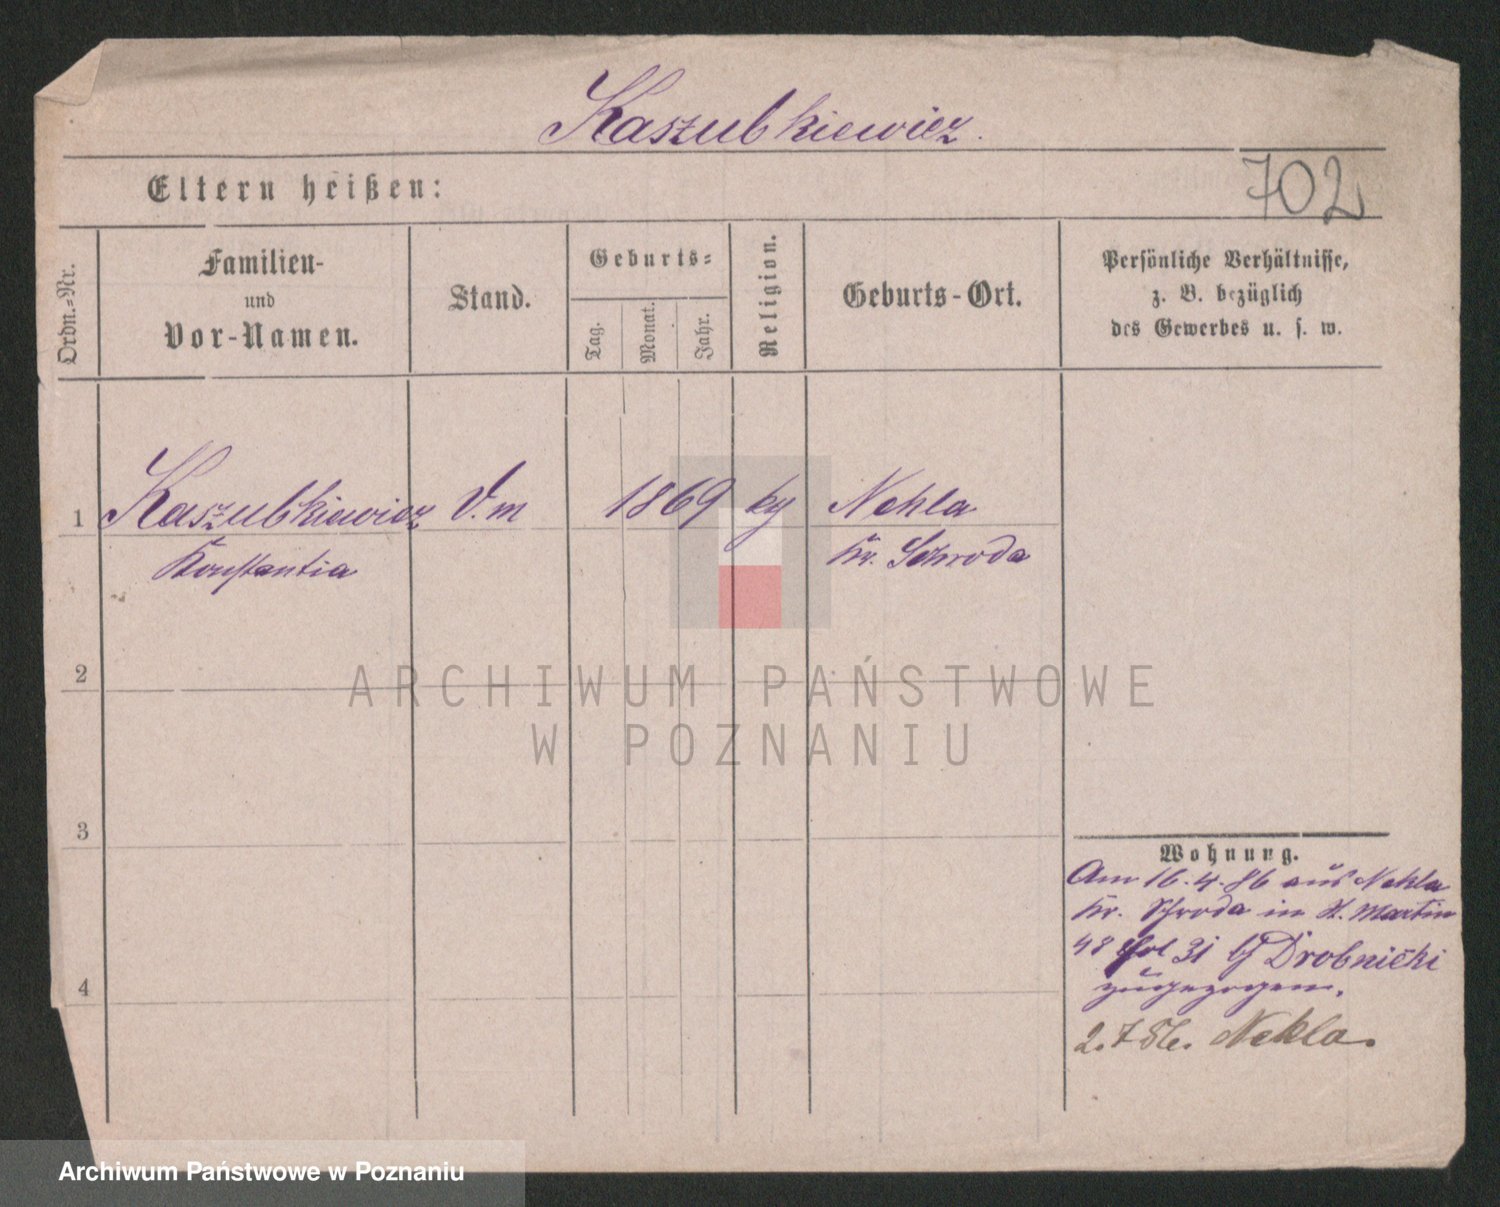 Kaszubkiewicz.
Eltern heißen:
702
Ordn.-Nr.
Familien-
und
Vor-Namen.
Stand.
Geburts-
Tag.
Monat.
Jahr.
Religion.
Geburts-Ort.
Persönliche Verhältnisse,
z. B. bezüglich
des Gewerbes u. s. w.
1 Kaszubkiewicz 1869 Nekla
Konstantia Kr. Schroda
2
3
4
Wohnung.
Am 16.4.86 aus Nekla
Kr. Schroda in St. Martin
48 31 Drobnicki
zugezogen.
2.7.86. Nekla.
ARCHIWUM PAŃSTWOWE
W POZNANIU
Archiwum Państwowe w Poznaniu